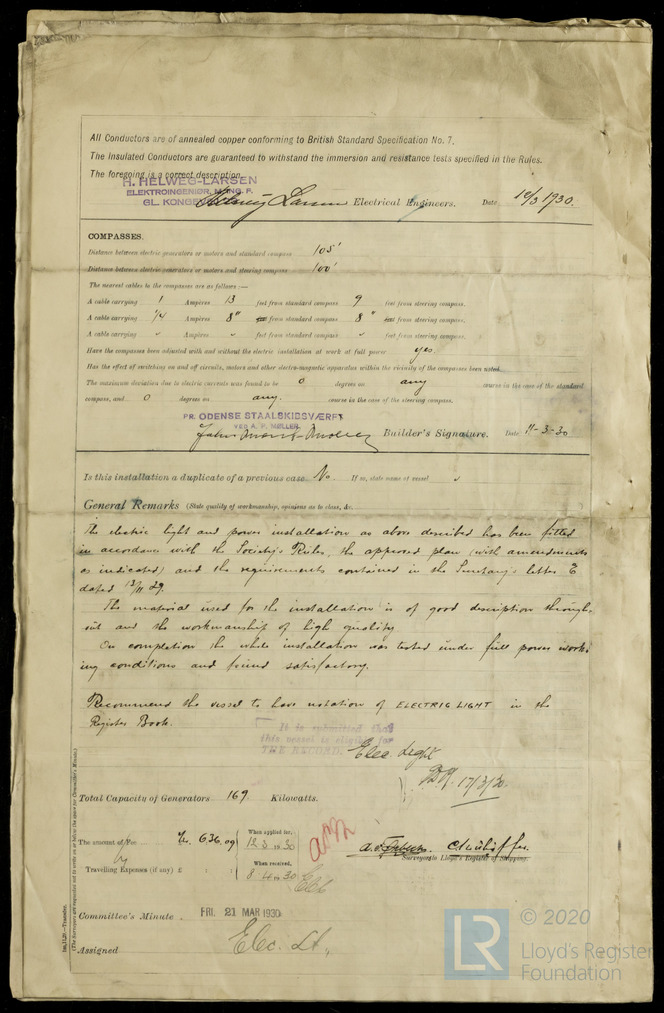 All Conductors are of annealed copper conforming to British Standard Specification No. 7.
The Insulated Conductors are guaranteed to withstand the immersion and resistance tests specified in the Rules.
The foregoing is a correct description.
H. HELWEG-LARSEN
ELEKTROINGENIØR, M. ING. F.
GL. KONGE
Larsen Electrical Engineers. Date 1930.
COMPASSES.
Distance between electric generators or motors and standard compass 105'
Distance between electric generators or motors and steering compass 100'
The nearest cables to the compasses are as follows:—
A cable carrying 1 Ampères 13 feet from standard compass 9 feet from steering compass.
A cable carrying 1/4 Ampères 8" feet from standard compass 8" feet from steering compass.
A cable carrying " Ampères " feet from standard compass " feet from steering compass.
Have the compasses been adjusted with and without the electric installation at work at full power yes
Has the effect of switching on and off circuits, motors and other electro-magnetic apparatus within the vicinity of the compasses been noted
The maximum deviation due to electric currents was found to be 0 degrees on any course in the case of the standard
compass, and 0 degrees on any. course in the case of the steering compass.
PR. ODENSE STAALSKIBSVÆRFT
VED A. P. MØLLER.
Builder's Signature. Date 11-3-30
Is this installation a duplicate of a previous case No. If so, state name of vessel
General Remarks (State quality of workmanship, opinions as to class, &c.
The electric light and power installation as above described has been fitted
in accordance with the Society's Rules, the approved plan (with amendments
as indicated) and the requirements contained in the Secretary's letter E
dated 13/11 29.
The material used for the installation is of good description through-
out and the workmanship of high quality
On completion the whole installation was tested under full power work-
ing conditions and found satisfactory.
Recommend the vessel to have notation of ELECTRIC LIGHT in the
Register Book.
It is submitted that
this vessel is eligible for
THE RECORD. Elec. Light
17/3/30
Total Capacity of Generators 169 Kilowatts.
The amount of Fee 636.09 When applied for, 12.3.1930
Travelling Expenses (if any) £ When received, 8.4.1930
Surveyor to Lloyd's Register of Shipping.
Committee's Minute FRI. 21 MAR 1930
Assigned Elec. Lt.
(The Surveyors are requested not to write on or below the space for Committee's Minute.)
© 2020
LR
Lloyd's Register
Foundation